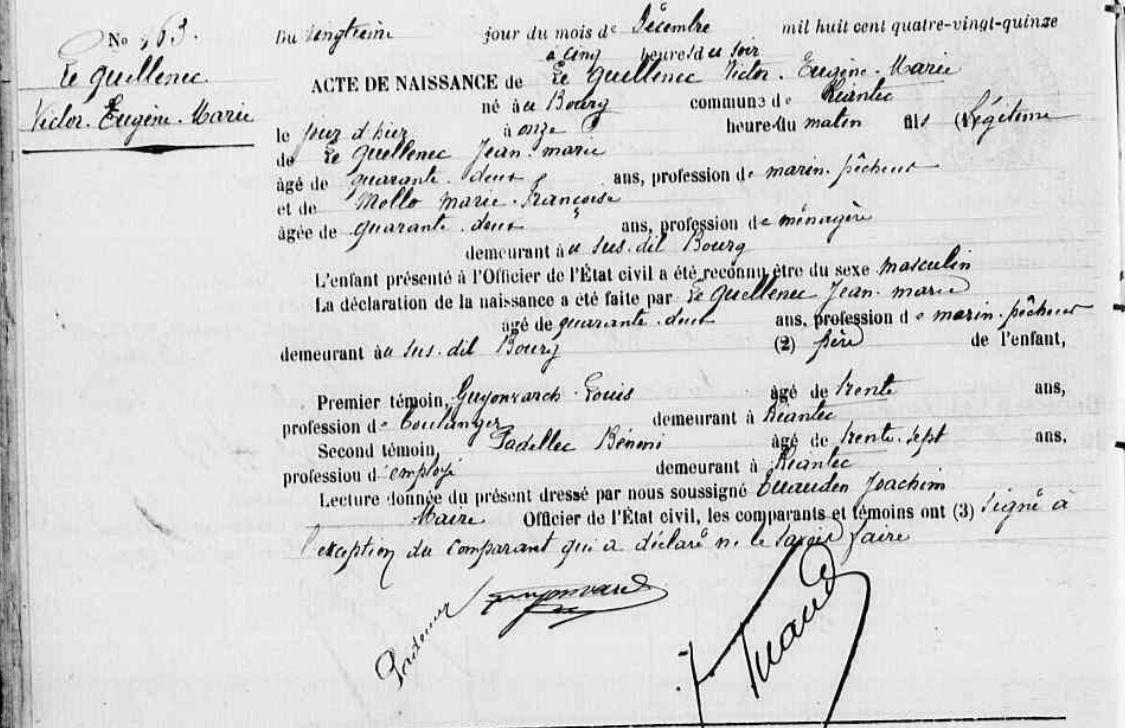 No 163.
Le Quellenec
Victor. Eugène. Marie
Du vingtième jour du mois de Décembre mil huit cent quatre-vingt-quinze
à cinq heures du soir
ACTE DE NAISSANCE de Le Quellenec Victor. Eugène. Marie
né à au Bourg commune de Riantec
le jour d'hier à onze heures du matin fils (Légitime
de Le Quellenec Jean. marie
âgé de quarante. deux ans, profession de marin. pêcheur
et de Mello marie. Françoise
âgée de quarante. deux ans, profession de ménagère
demeurant au sus. dit Bourg
L'enfant présenté à l'Officier de l'État civil a été reconnu être du sexe masculin
La déclaration de la naissance a été faite par Le Quellenec Jean. marie
âgé de quarante. deux ans, profession de marin. pêcheur
demeurant au sus. dit Bourg (2) père de l'enfant,
Premier témoin, Guyonvarch Louis âgé de trente ans,
profession de boulanger demeurant à Riantec
Second témoin, Padellec Bénoni âgé de trente. sept ans,
profession d'employé demeurant à Riantec
Lecture donnée du présent dressé par nous soussigné Joachim
Maire Officier de l'État civil, les comparants et témoins ont (3) signé à
l'exception du comparant qui a déclaré ne le savoir faire
Guyonvarch